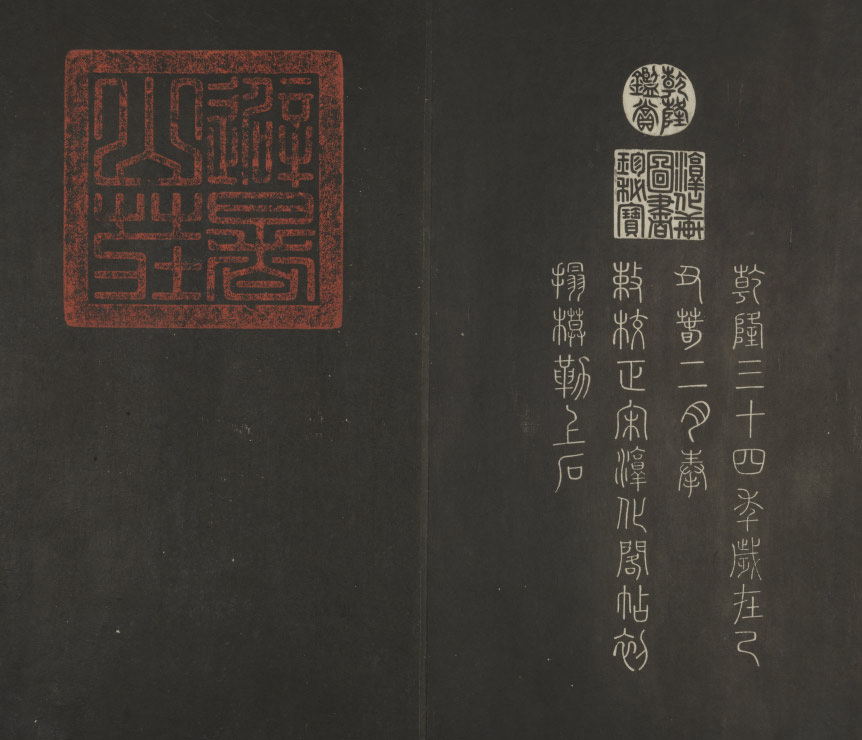 乾隆
鑑賞
淳化軒
圖書
珍秘寶
乾隆三十四年歲在己
丑春二月奉
敕校正宋淳化閣帖初
搨模勒上石
避暑
山莊